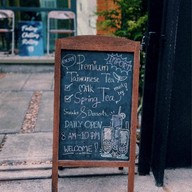 Premium
Taiwanese Tea
Milk Tea
Spring Tea
Snacks & Desserts
DAILY OPEN
8 AM-10 PM
WELCOME!